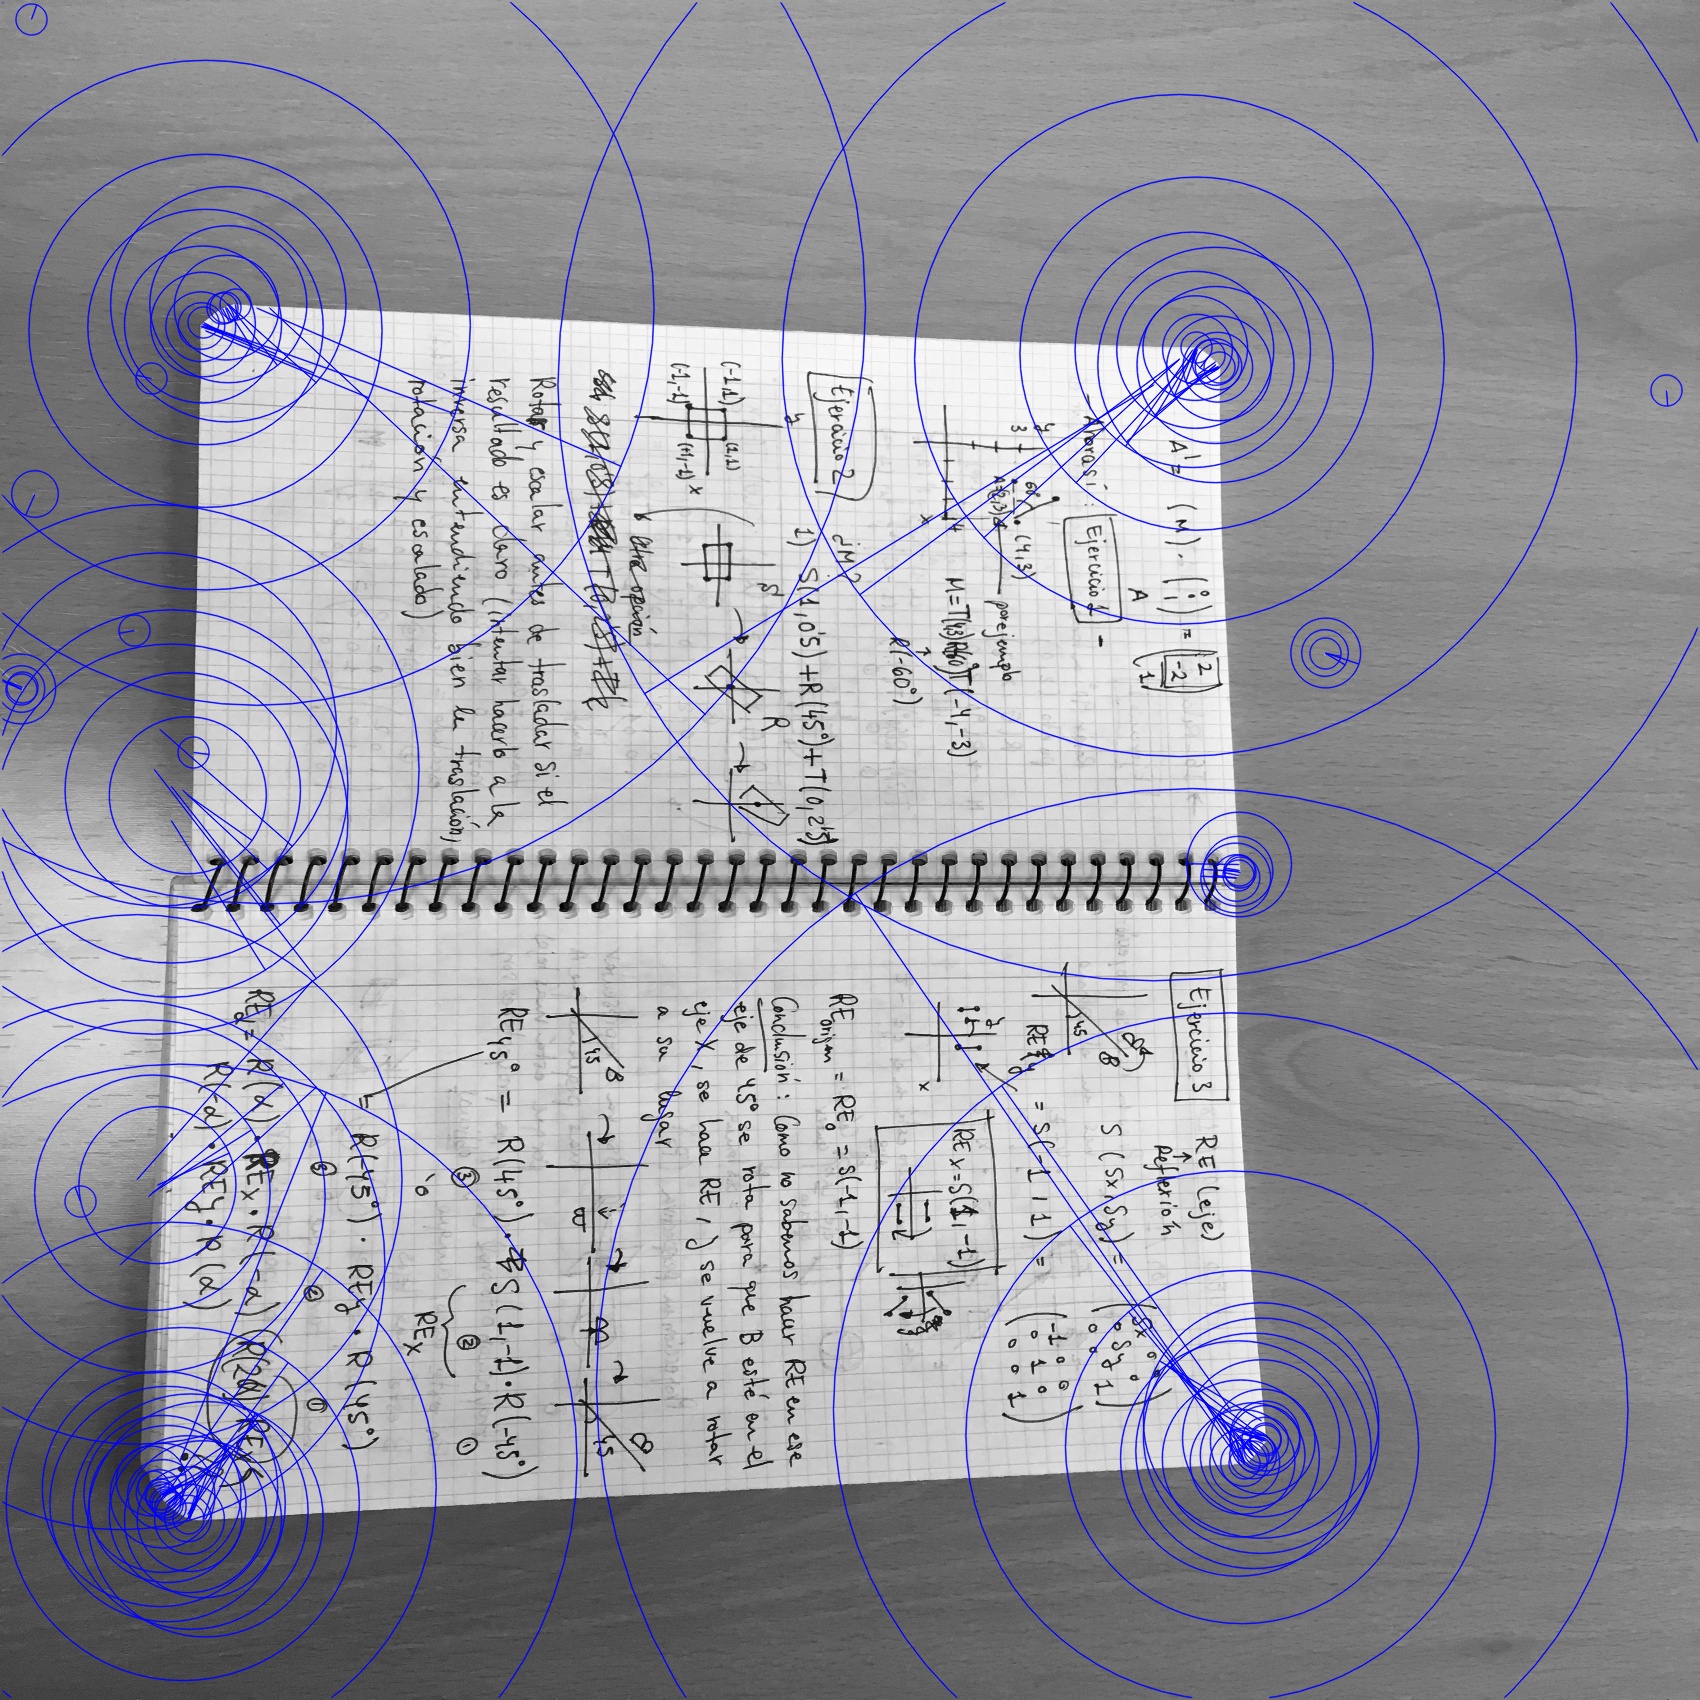 A' = (M) · (0 0 1) = (2 -2 1)
A
- Ahora sí: Ejercicio 1 -
y
3
60°
(4,3)
A=(2,3)
4
x
por ejemplo
(-4,-3)
R(-60°)
Ejercicio 2
¿M?
1) S(1,0'5)+R(45°)+T(0,2'5)
y
(-1,1)
(1,1)
(-1,-1)
(+1,-1)
x
S
R
Otra opción
Rotar y escalar antes de trasladar si el
resultado es claro (intentar hacerlo a la
inversa entendiendo bien la traslación,
rotación y escalado)
Ejercicio 3
RE (eje)
↑
Reflexión
45
B
S(Sx,Sy) = (Sx 0 0
0 Sy 0
0 0 1)
REy = S(-1,1) = (-1 0 0
0 1 0
0 0 1)
y
x
REx=S(1,-1)
REorigen = REo = S(-1,-1)
Conclusión: Como no sabemos hacer RE en ese
eje de 45° se rota para que B esté en el
eje X, se hace RE, y se vuelve a rotar
a su lugar
45
B
B
B
45
B
RE45° = R(45°) · S(1,-1) · R(-45°)
③ ② ①
REx
ó
= R(-45°) · REy · R(45°)
③ ② ①
REα = R(α) · REx · R(-α)
R(-α) · REy · R(α)